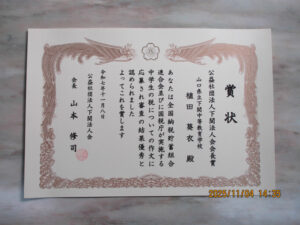 賞状
公益社団法人下関法人会会長賞
山口県立下関中等教育学校
植田 葵衣 殿
あなたは全国納税貯蓄組合
連合会並びに国税庁が実施する
中学生の税についての作文に
応募され審査の結果優秀と
認められました
よってこれを賞します
令和七年十一月八日
公益社団法人下関法人会
会長 山本 修司
2025/11/04 14:35